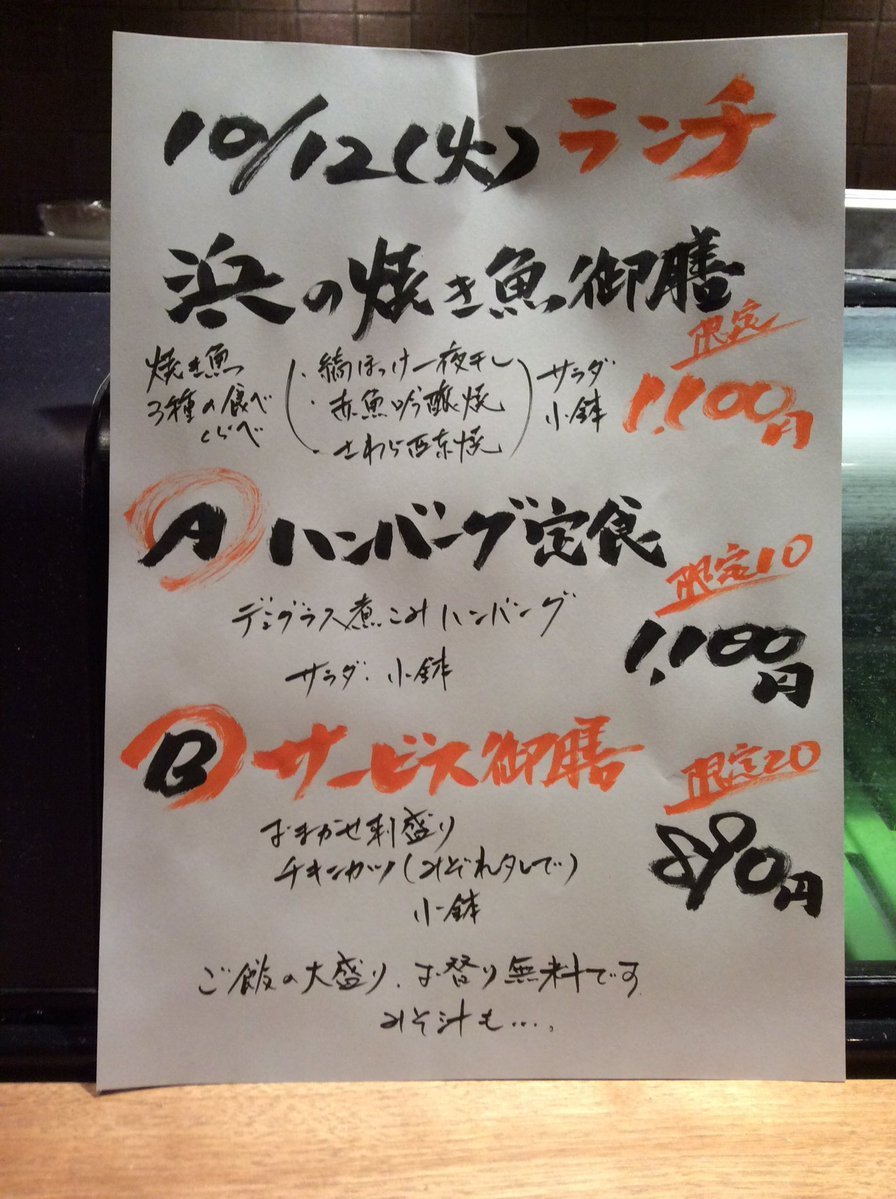 10/12(火) ランチ
浜の焼き魚御膳
限定
1,100円
焼き魚
3種の食べ
くらべ
・縞ほっけ一夜干し
・赤魚吟醸焼
・さわら西京焼
サラダ
小鉢
A ハンバーグ定食
限定10
1,100円
デミグラス煮こみハンバーグ
サラダ・小鉢
B サービス御膳
限定20
890円
おまかせ刺盛り
チキンカツ(みぞれタレで)
小鉢
ご飯の大盛り、お替り無料です
みそ汁も…。